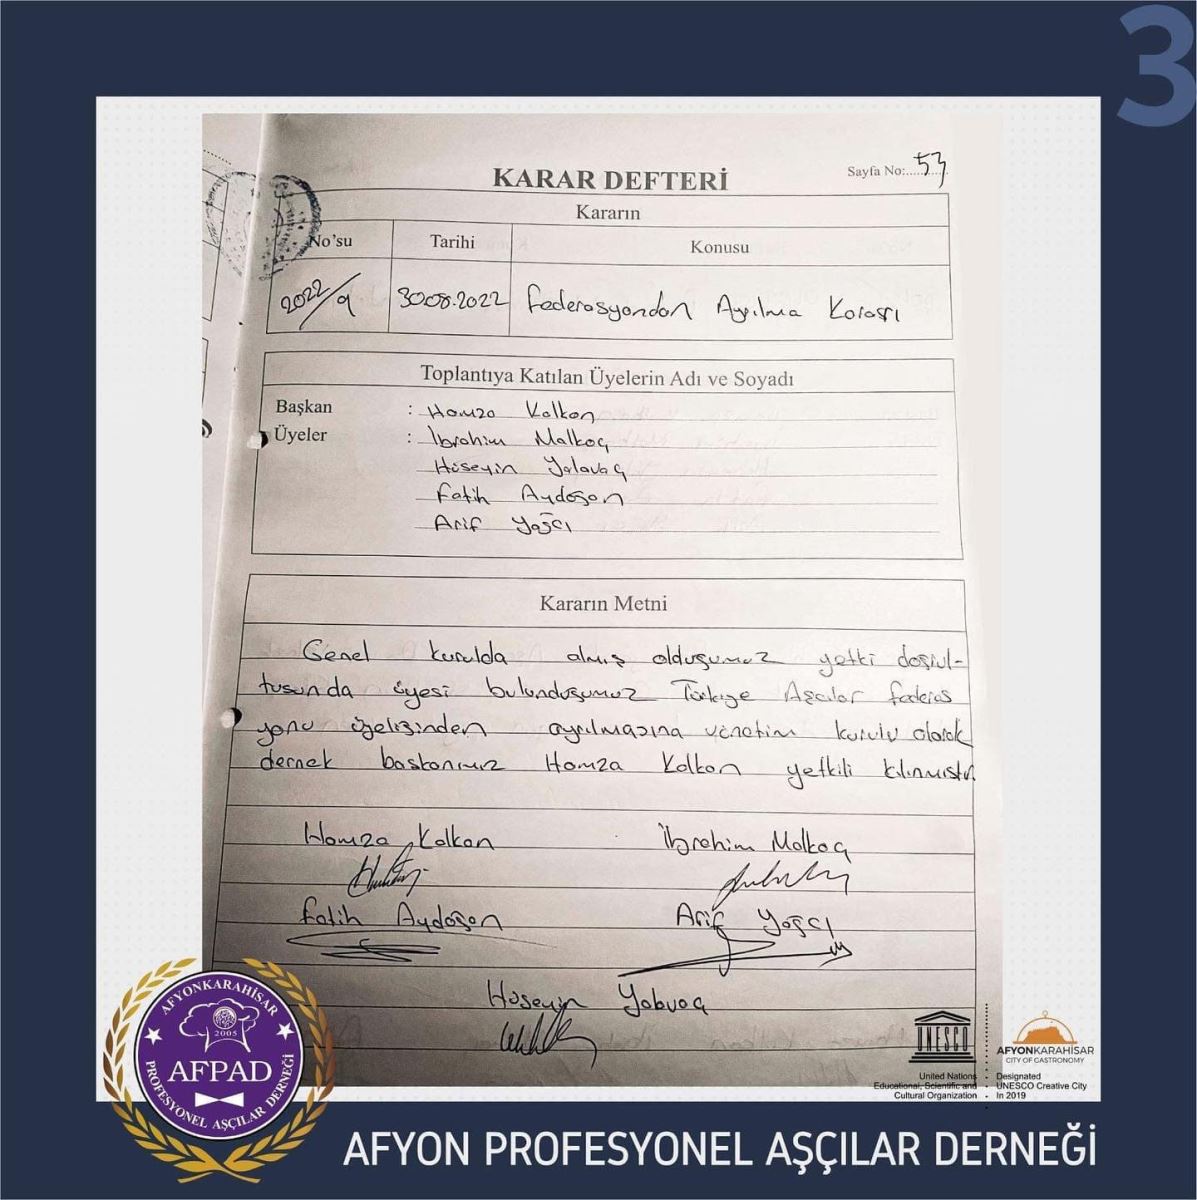 3
KARAR DEFTERİ
Sayfa No:..........53
Kararın
No'su
Tarihi
Konusu
2022/9
30.08.2022
Federasyondan Ayrılma Kararı
Toplantıya Katılan Üyelerin Adı ve Soyadı
Başkan : Hamza Kalkan
Üyeler : İbrahim Malkoç
Hüseyin Yalavaç
Fatih Aydoğan
Arif Yağcı
Kararın Metni
Genel kurulda almış olduğumuz yetki doğrul-
tusunda üyesi bulunduğumuz Türkiye Aşçılar federas
yonu üyeliğinden ayrılmasına yönetim kurulu olarak
dernek başkanımız Hamza Kalkan yetkili kılınmıştır
Hamza Kalkan
İbrahim Malkoç
Fatih Aydoğan
Arif Yağcı
Hüseyin Yalavaç
AFYONKARAHİSAR
2005
AFPAD
PROFESYONEL AŞÇILAR DERNEĞİ
UNESCO
United Nations
Educational, Scientific and
Cultural Organization
AFYONKARAHİSAR
CITY OF GASTRONOMY
Designated
UNESCO Creative City
In 2019
AFYON PROFESYONEL AŞÇILAR DERNEĞİ